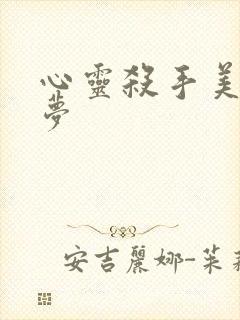 心靈殺手美
夢
安吉麗娜-茱莉